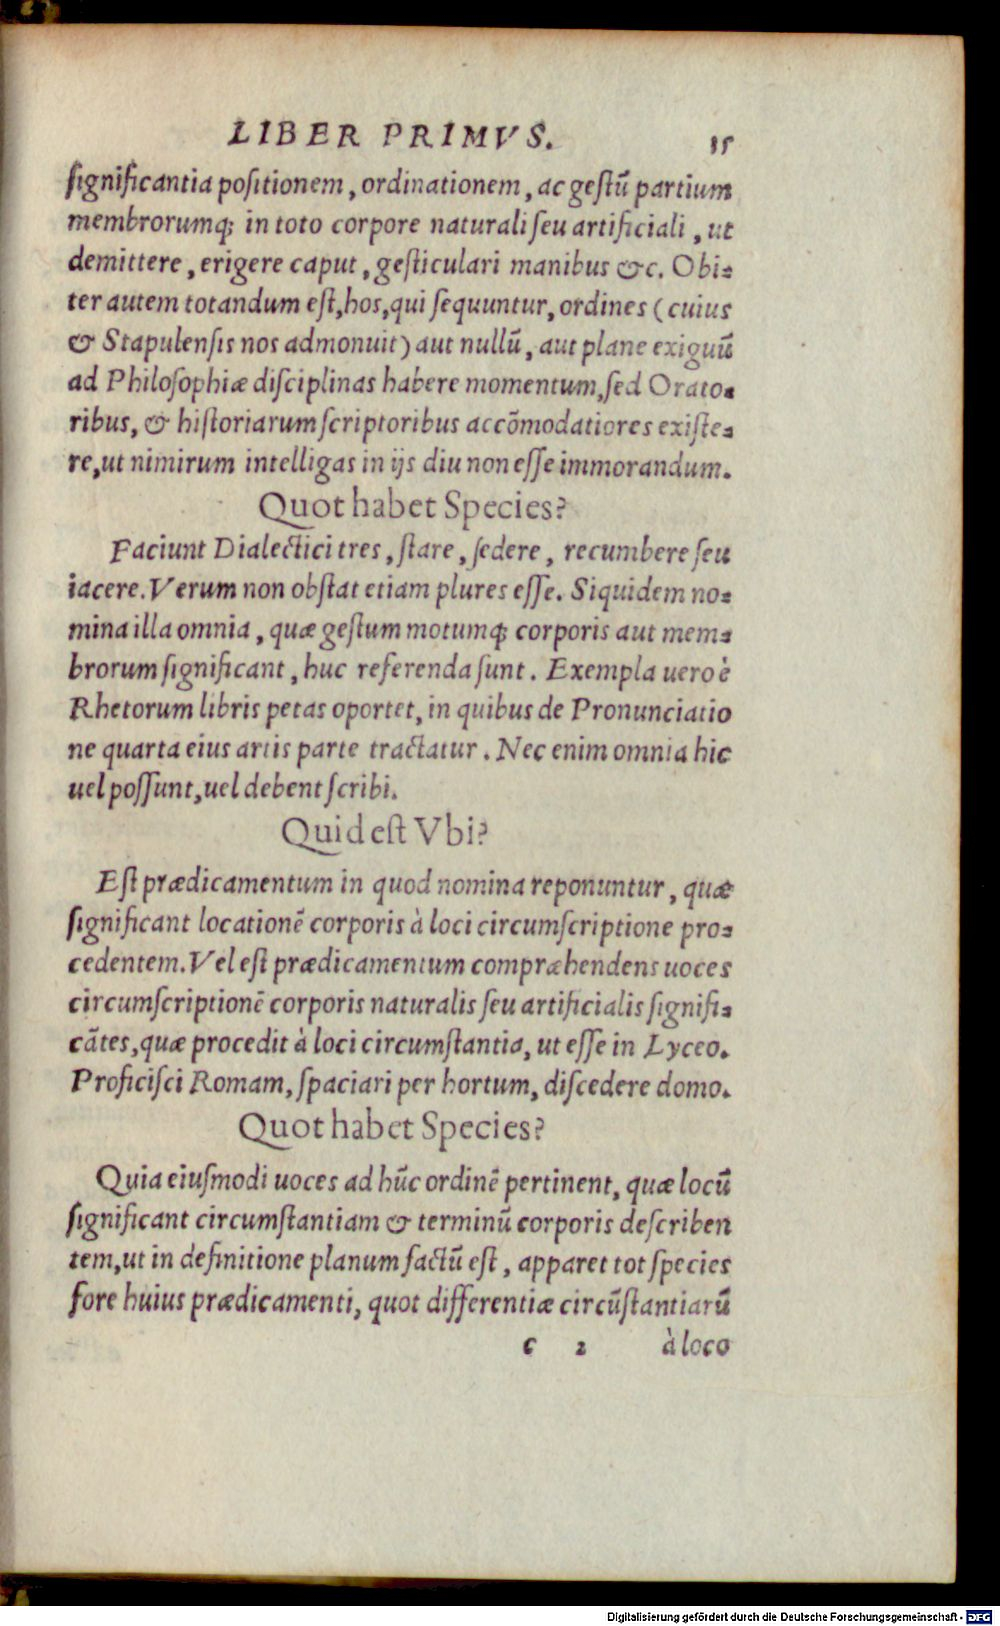 LIBER PRIMVS. 15
ſignificantia poſitionem, ordinationem, ac geſtũ partium
membrorumq; in toto corpore naturali ſeu artificiali, ut
demittere, erigere caput, geſticulari manibus &c. Obi-
ter autem totandum eſt, hos, qui ſequuntur, ordines (cuius
& Stapulenſis nos admonuit) aut nullũ, aut plane exiguũ
ad Philoſophiæ diſciplinas habere momentum, ſed Orato-
ribus, & hiſtoriarum ſcriptoribus accõmodatiores exiſte-
re, ut nimirum intelligas in ijs diu non eſſe immorandum.
Quot habet Species?
Faciunt Dialectici tres, ſtare, ſedere, recumbere ſeu
iacere. Verum non obſtat etiam plures eſſe. Siquidem no-
mina illa omnia, quæ geſtum motumq; corporis aut mem-
brorum ſignificant, huc referenda ſunt. Exempla uero è
Rhetorum libris petas oportet, in quibus de Pronunciatio
ne quarta eius artis parte tractatur. Nec enim omnia hic
uel poſſunt, uel debent ſcribi.
Quid eſt Vbi?
Eſt prædicamentum in quod nomina reponuntur, quæ
ſignificant locationẽ corporis à loci circumſcriptione pro-
cedentem. Vel eſt prædicamentum compræhendens uoces
circumſcriptionẽ corporis naturalis ſeu artificialis ſignifi-
cãtes, quæ procedit à loci circumſtantia, ut eſſe in Lyceo.
Proficiſci Romam, ſpaciari per hortum, diſcedere domo.
Quot habet Species?
Quia eiuſmodi uoces ad hũc ordinẽ pertinent, quæ locũ
ſignificant circumſtantiam & terminũ corporis deſcriben
tem, ut in definitione planum factũ eſt, apparet tot ſpecies
fore huius prædicamenti, quot differentiæ circũſtantiarũ
c 2 à loco
Digitalisierung gefördert durch die Deutsche Forschungsgemeinschaft - DFG